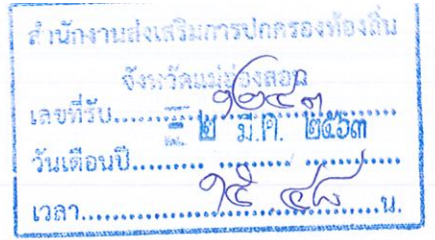 สำนักงานส่งเสริมการปกครองท้องถิ่น
จังหวัดแม่ฮ่องสอน
เลขที่รับ.....
๒ มี.ค. ๒๕๖๓
วันเดือนปี.....
เวลา.....๑๕.๔๘.....น.